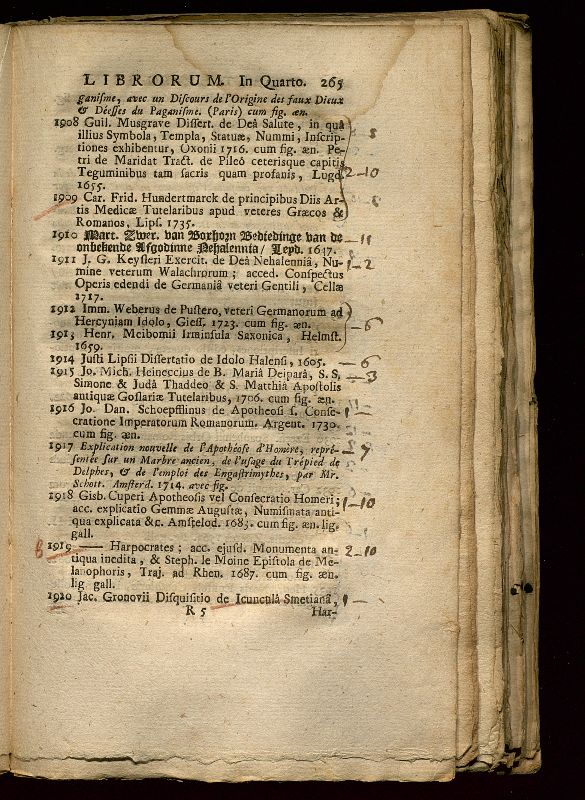 LIBRORUM. In Quarto. 265
ganiſme, avec un Diſcours de l'Origine des faux Dieux
& Déeſſes du Paganiſme. (Paris) cum fig. æn.
1908 Guil. Muſgrave Diſſert. de Deâ Salute, in quâ
illius Symbola, Templa, Statuæ, Nummi, Inſcrip-
tiones exhibentur, Oxonii 1716. cum fig. æn. Pe-
tri de Maridat Tract. de Pileô ceterisque capitis
Teguminibus tam ſacris quam profanis, Lugd. 2-10
1655.
1909 Car. Frid. Hundertmarck de principibus Diis Ar-
tis Medicæ Tutelaribus apud veteres Græcos &
Romanos, Lipſ. 1735.
1910 Mart. Zwer. van Boxhorn Bediedinge van de - 11
onbekende Afgodinne Nehalennia / Leyd. 1647.
1911 J. G. Keyſleri Exercit. de Deâ Nehalenniâ, Nu- 1-2
mine veterum Walachrorum; acced. Conſpectus
Operis edendi de Germaniâ veteri Gentili, Cellæ
1717.
1912 Imm. Weberus de Puſtero, veteri Germanorum ad
Hercyniam Idolo, Gieſſ. 1723. cum fig. æn. - 6
1913 Henr. Meibomii Irminſula Saxonica, Helmſt.
1659.
1914 Juſti Lipſii Diſſertatio de Idolo Halenſi, 1605. - 6
1915 Jo. Mich. Heineccius de B. Mariâ Deiparâ, S. S. - 3
Simone & Judâ Thaddeo & S. Matthiâ Apoſtolis
antiquæ Goſlariæ Tutelaribus, 1706. cum fig. æn.
1916 Jo. Dan. Schoepfflinus de Apotheoſi ſ. Conſe- 1 -
cratione Imperatorum Romanorum. Argent. 1730.
cum fig. æn.
1917 Explication nouvelle de l'Apothéoſe d'Homère, repré-
ſentée ſur un Marbre ancien, de l'uſage du Trépied de
Delphes, & de l'emploi des Engaſtrimythes, par Mr.
Schott. Amſterd. 1714. avec fig.
1918 Gisb. Cuperi Apotheoſis vel Conſecratio Homeri; 1-10
acc. explicatio Gemmæ Auguſtæ, Numiſmata anti-
qua explicata &c. Amſtelod. 1683. cum fig. æn. lig.
gall.
1919 —— Harpocrates; acc. ejuſd. Monumenta an- 2-10
tiqua inedita, & Steph. le Moine Epiſtola de Me-
lanophoris, Traj. ad Rhen. 1687. cum fig. æn.
lig gall.
1920 Jac. Gronovii Diſquiſitio de Icunculâ Smetianâ, 1 -
R 5 Har-